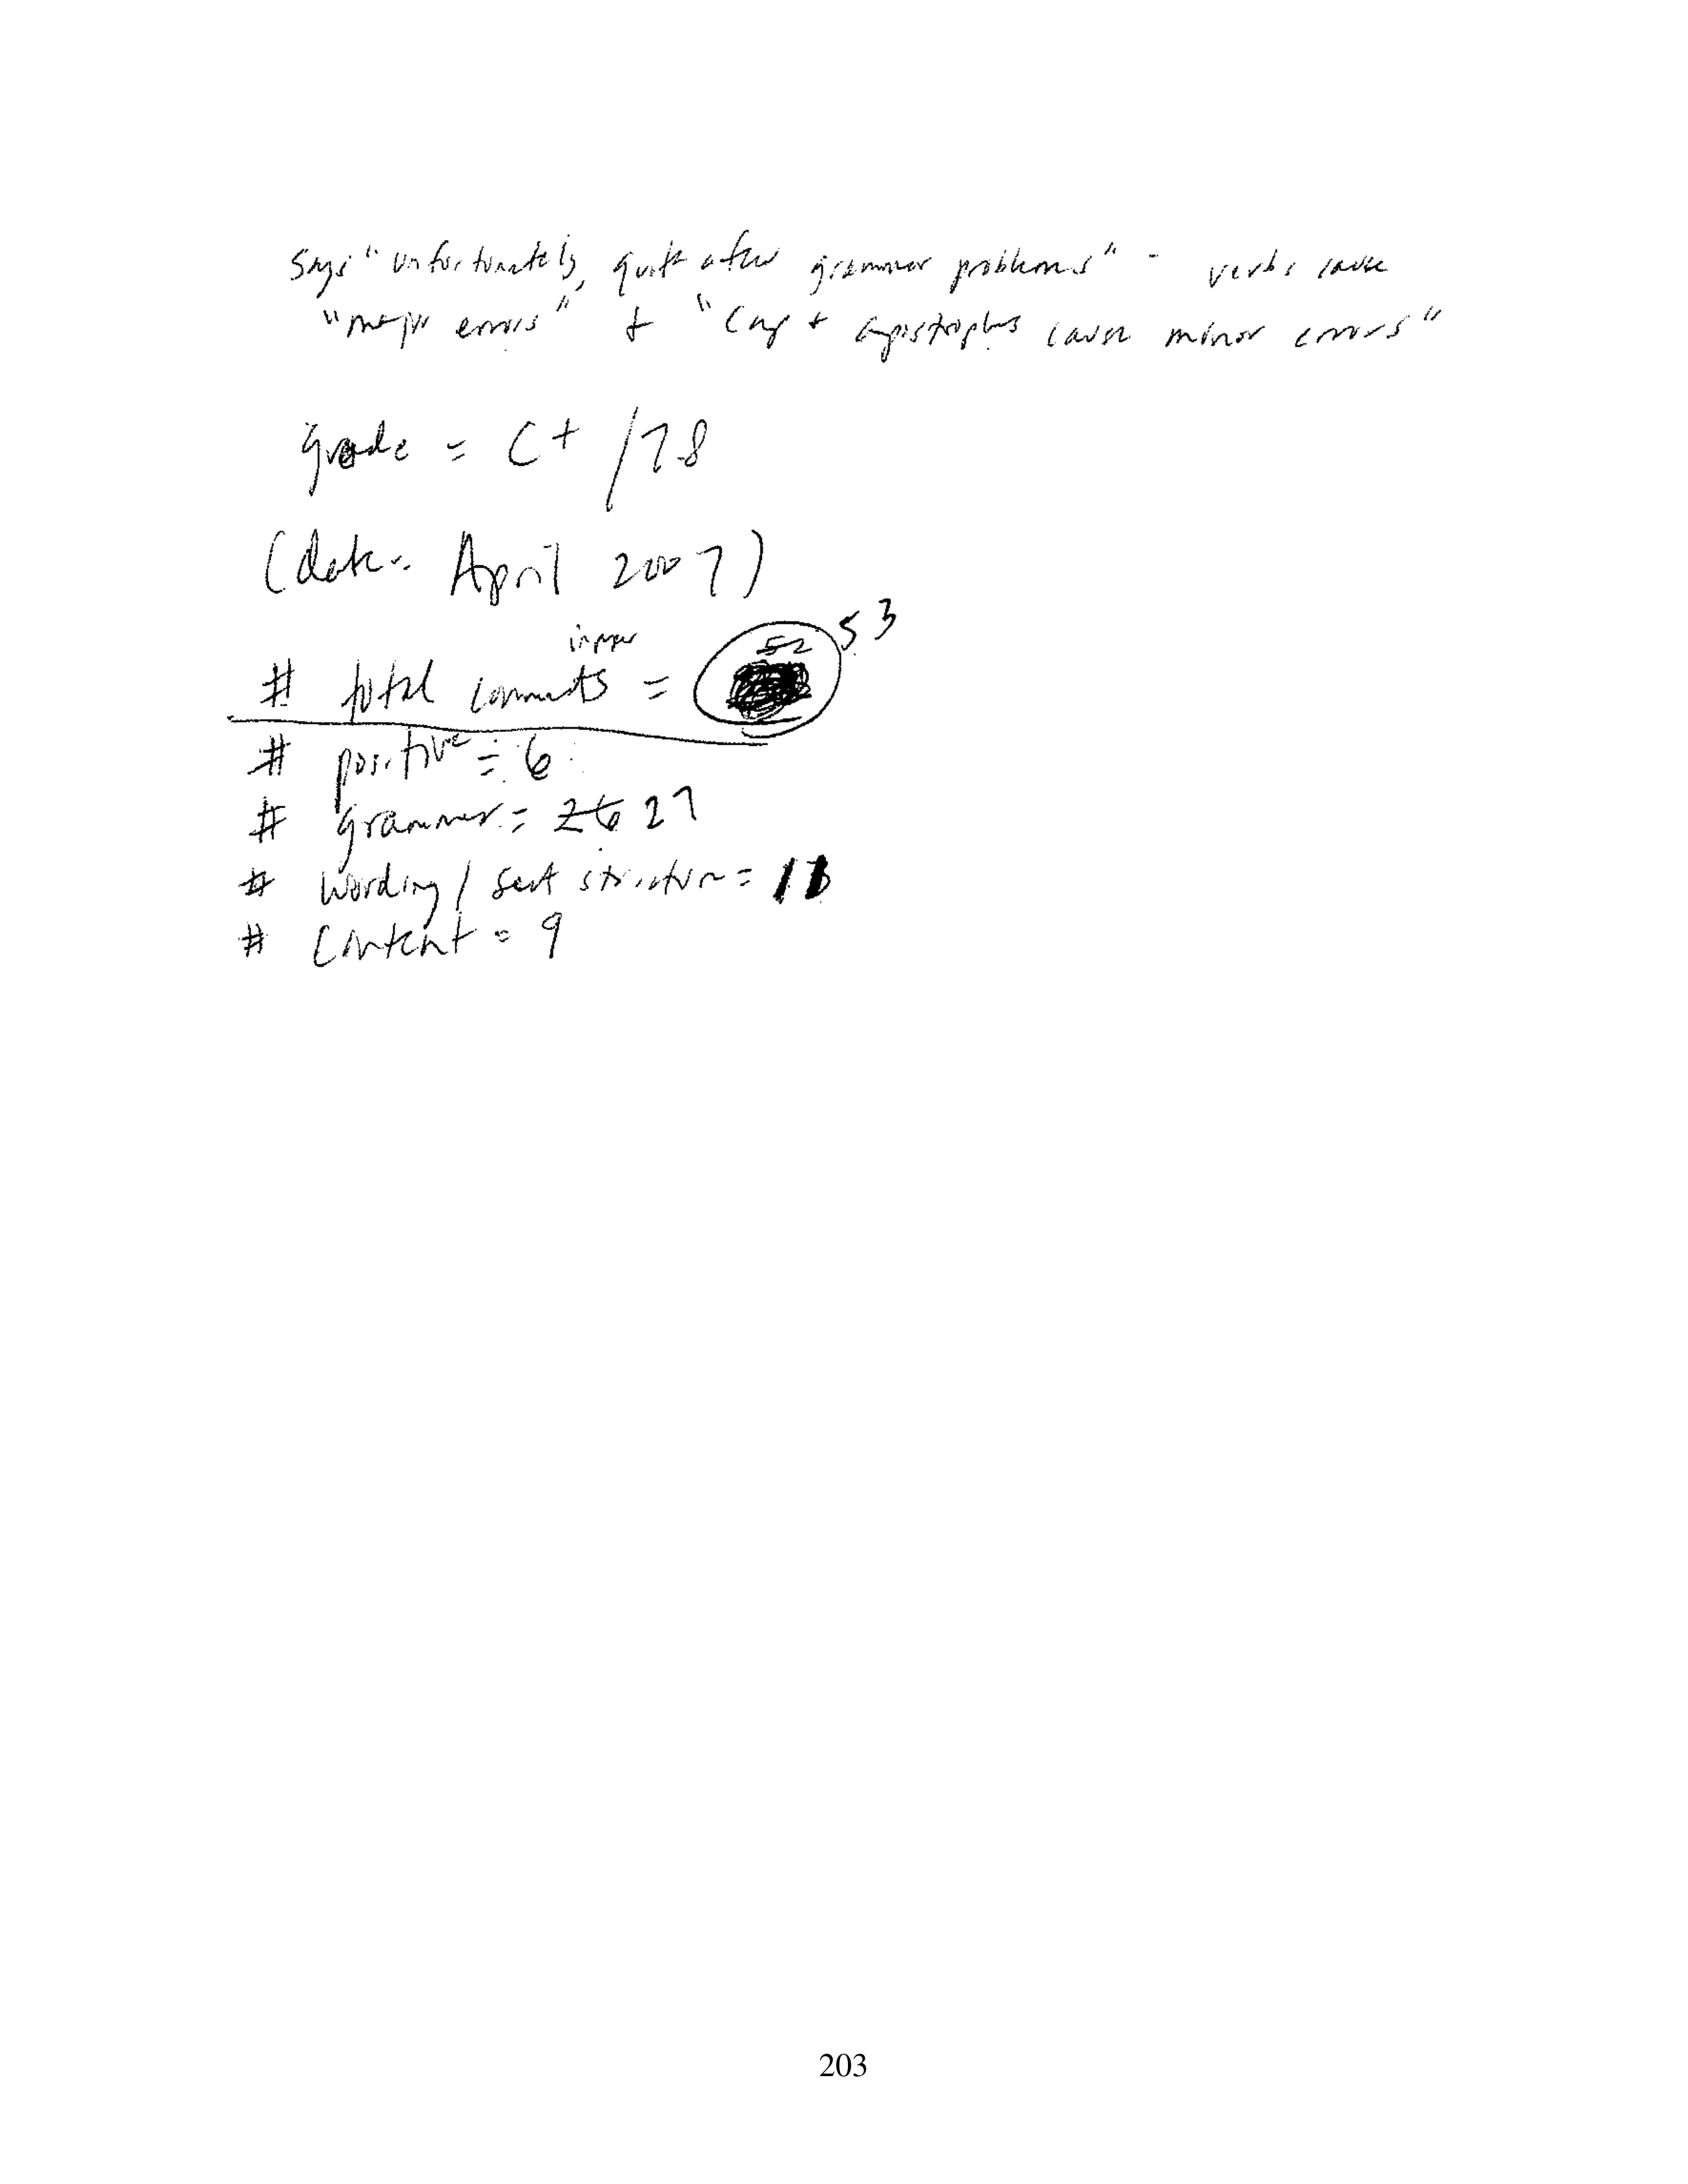 Says "unfortunately, quite a few grammar problems" - verbs cause
"major errors" + "Cap + apostrophes cause minor errors"
grade = C+ /78
(date = April 2007)
in paper
# total comments = 52 53
# positive = 6
# grammar = 26 27
# wording / sent structure = 11
# Content = 9
203